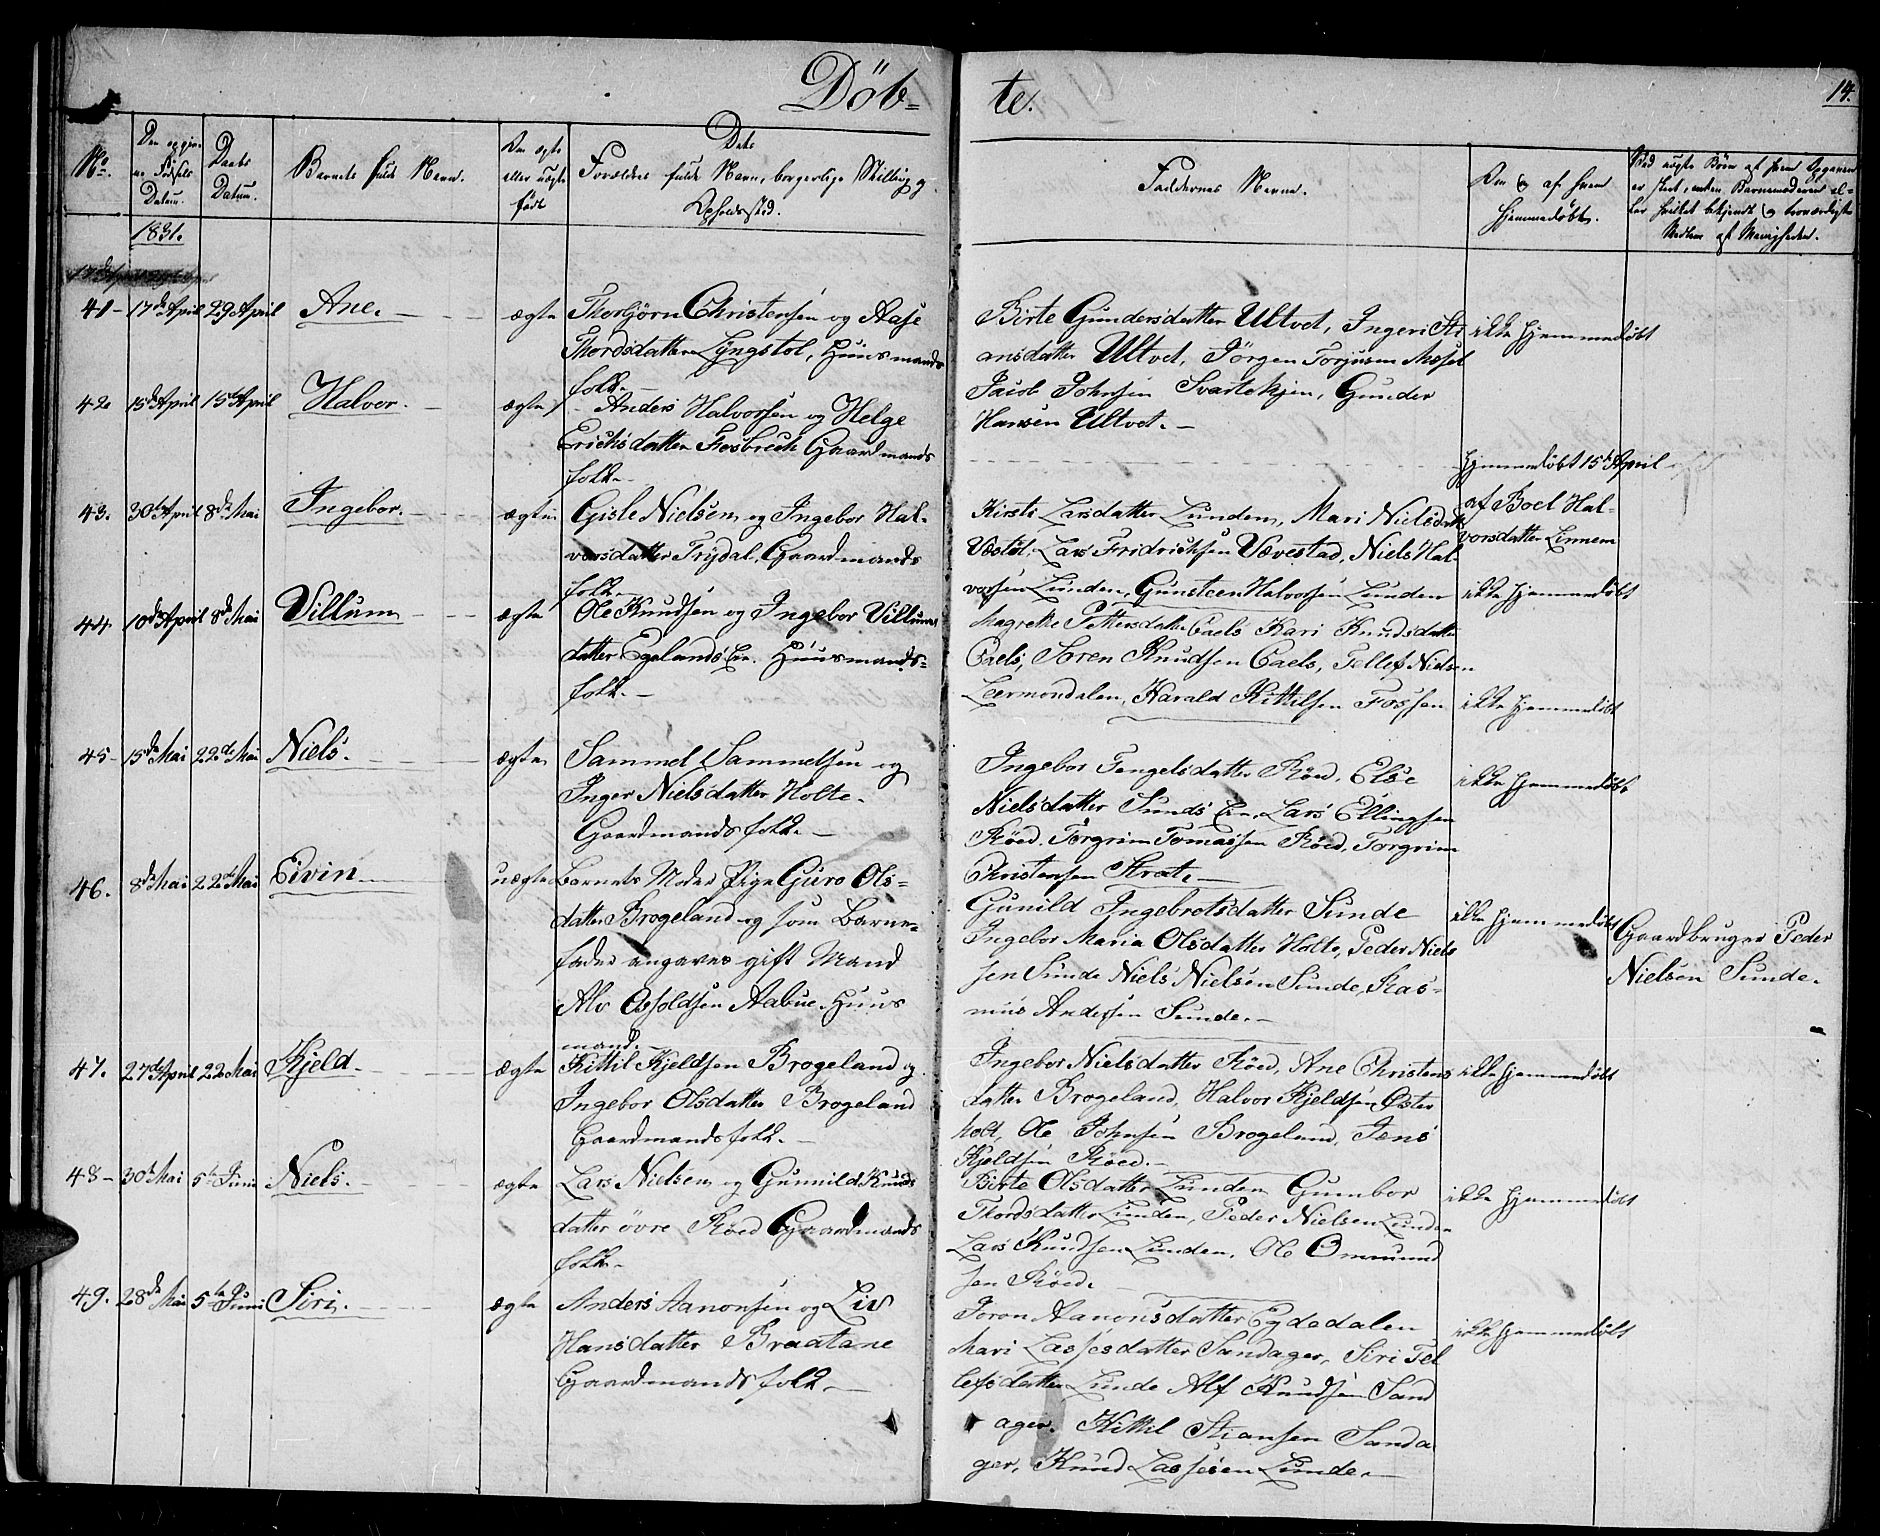 Döb-
te.
14.
No.
Den opgiv-
ne Fødsels
Datum.
Daabs
Datum.
Barnets fulde Navn.
Om ægte
eller uægte
født
Dets
Forældres fulde Navn, borgerlige Stilling og
Opholdssted.
Faddernes Navne.
Om og af hvem
hjemmedøbt.
1831.
41- 17de April 29 April Ane. ægte
Thorbjörn Christensen og Aase
Thordsdatter Lyngstöl, Huusmands
folk.-
Birte Gundersdatter Ultvet, Ingeri Sti
ansdatter Ultvet, Jörgen Torjusen
Jacob Johnsen Svartekjen, Gunder
Hansen Ultvet.-
ikke hjemmedøbt
42 15de April 15de April Halvor. ægte
Anders Halvorsen og Helge
Erichsdatter Fosbrech Gaardmands
folk.-
hjemmedøbt 15de April
af Boel Hal-
vorsdatter Linnem
43. 30te April 8de Mai Ingebor. ægte
Gisle Nielsen og Ingebor Hal-
vorsdatter Trydal, Gaardmands
folk.-
Kirsti Larsdatter Lunden, Mari Nielsdatt
Væstöl, Lars Fridrichsen Vævestad, Niels Hal-
vorsen Lunden, Gunsteen Halvorsen Lunden
ikke hjemmedøbt
44. 10de April 8de Mai Villum ægte
Ole Knudsen og Ingebor Villums
datter Egelands Eie. Huusmands-
folk.-
Magrethe Pettersdatter Caels Kari Knudsdatter
Caels, Sören Knudsen Caels, Tellef Nielsen
Leermondalen, Harald Kittilsen Fossen
ikke hjemmedøbt
45- 15de Mai 22de Mai Niels. ægte
Sammel Sammelsen og
Inger Nielsdatter Holte.
Gaardmandsfolk.-
Ingebor Tengelsdatter Röed, Else
Nielsdatter Sunds Eie, Lars Ellingsen
Röed, Torgrim Tomassen Röed, Torgrim
Christensen Strat.-
ikke hjemmedøbt
46. 8de Mai 22de Mai Eivin. uægte
Barnets Moder Pige Guro Ols-
datter Brogeland og som Barne-
fader angaves gift Mand
Alv Osfoldsen Aabue. Huus
mand.-
Gunild Ingebretsdatter Sunde
Ingebor Maria Olsdatter Holte, Peder Niels
sen Sunde Niels Nielsen Sunde, Ras-
mus Andersen Sunde.-
ikke hjemmedøbt
Gaardbruger Peder
Nielsen Sunde.
47. 27de April 22 Mai Kjeld. ægte
Kittil Kjeldsen Brogeland og
Ingebor Olsdatter Brogeland
Gaardmandsfolk.-
Ingebor Nielsdatter Röed, Ane Christens
datter Brogeland, Halvor Kjeldsen Öster
holt, Ole Johnsen Brogeland, Jens
Kjeldsen Röed.-
ikke hjemmedøbt
48- 30te Mai 5te Juni Niels. ægte
Lars Nielsen og Gunnild Knuds
datter övre Röed Gaardmands
folk.-
Birte Olsdatter Lunden Gumbor
Thordsdatter Lunden, Peder Nielsen Lunden
Lars Knudsen Lunden, Ole Ommund
sen Röed.
ikke hjemmedøbt
49. 28de Mai 5te Juni Siri. ægte
Anders Aanonsen og Liv
Hansdatter Braatane
Gaardmandsfolk.-
Joron Aanonsdatter Egdedalen
Mari Lassesdatter Sandager, Siri Tel
lefsdatter Lunde Alf Knudsen Sand
ager. Kittil Stiansen Sanda
ger, Knud Lassesen Lunde.-
ikke hjemmedøbt